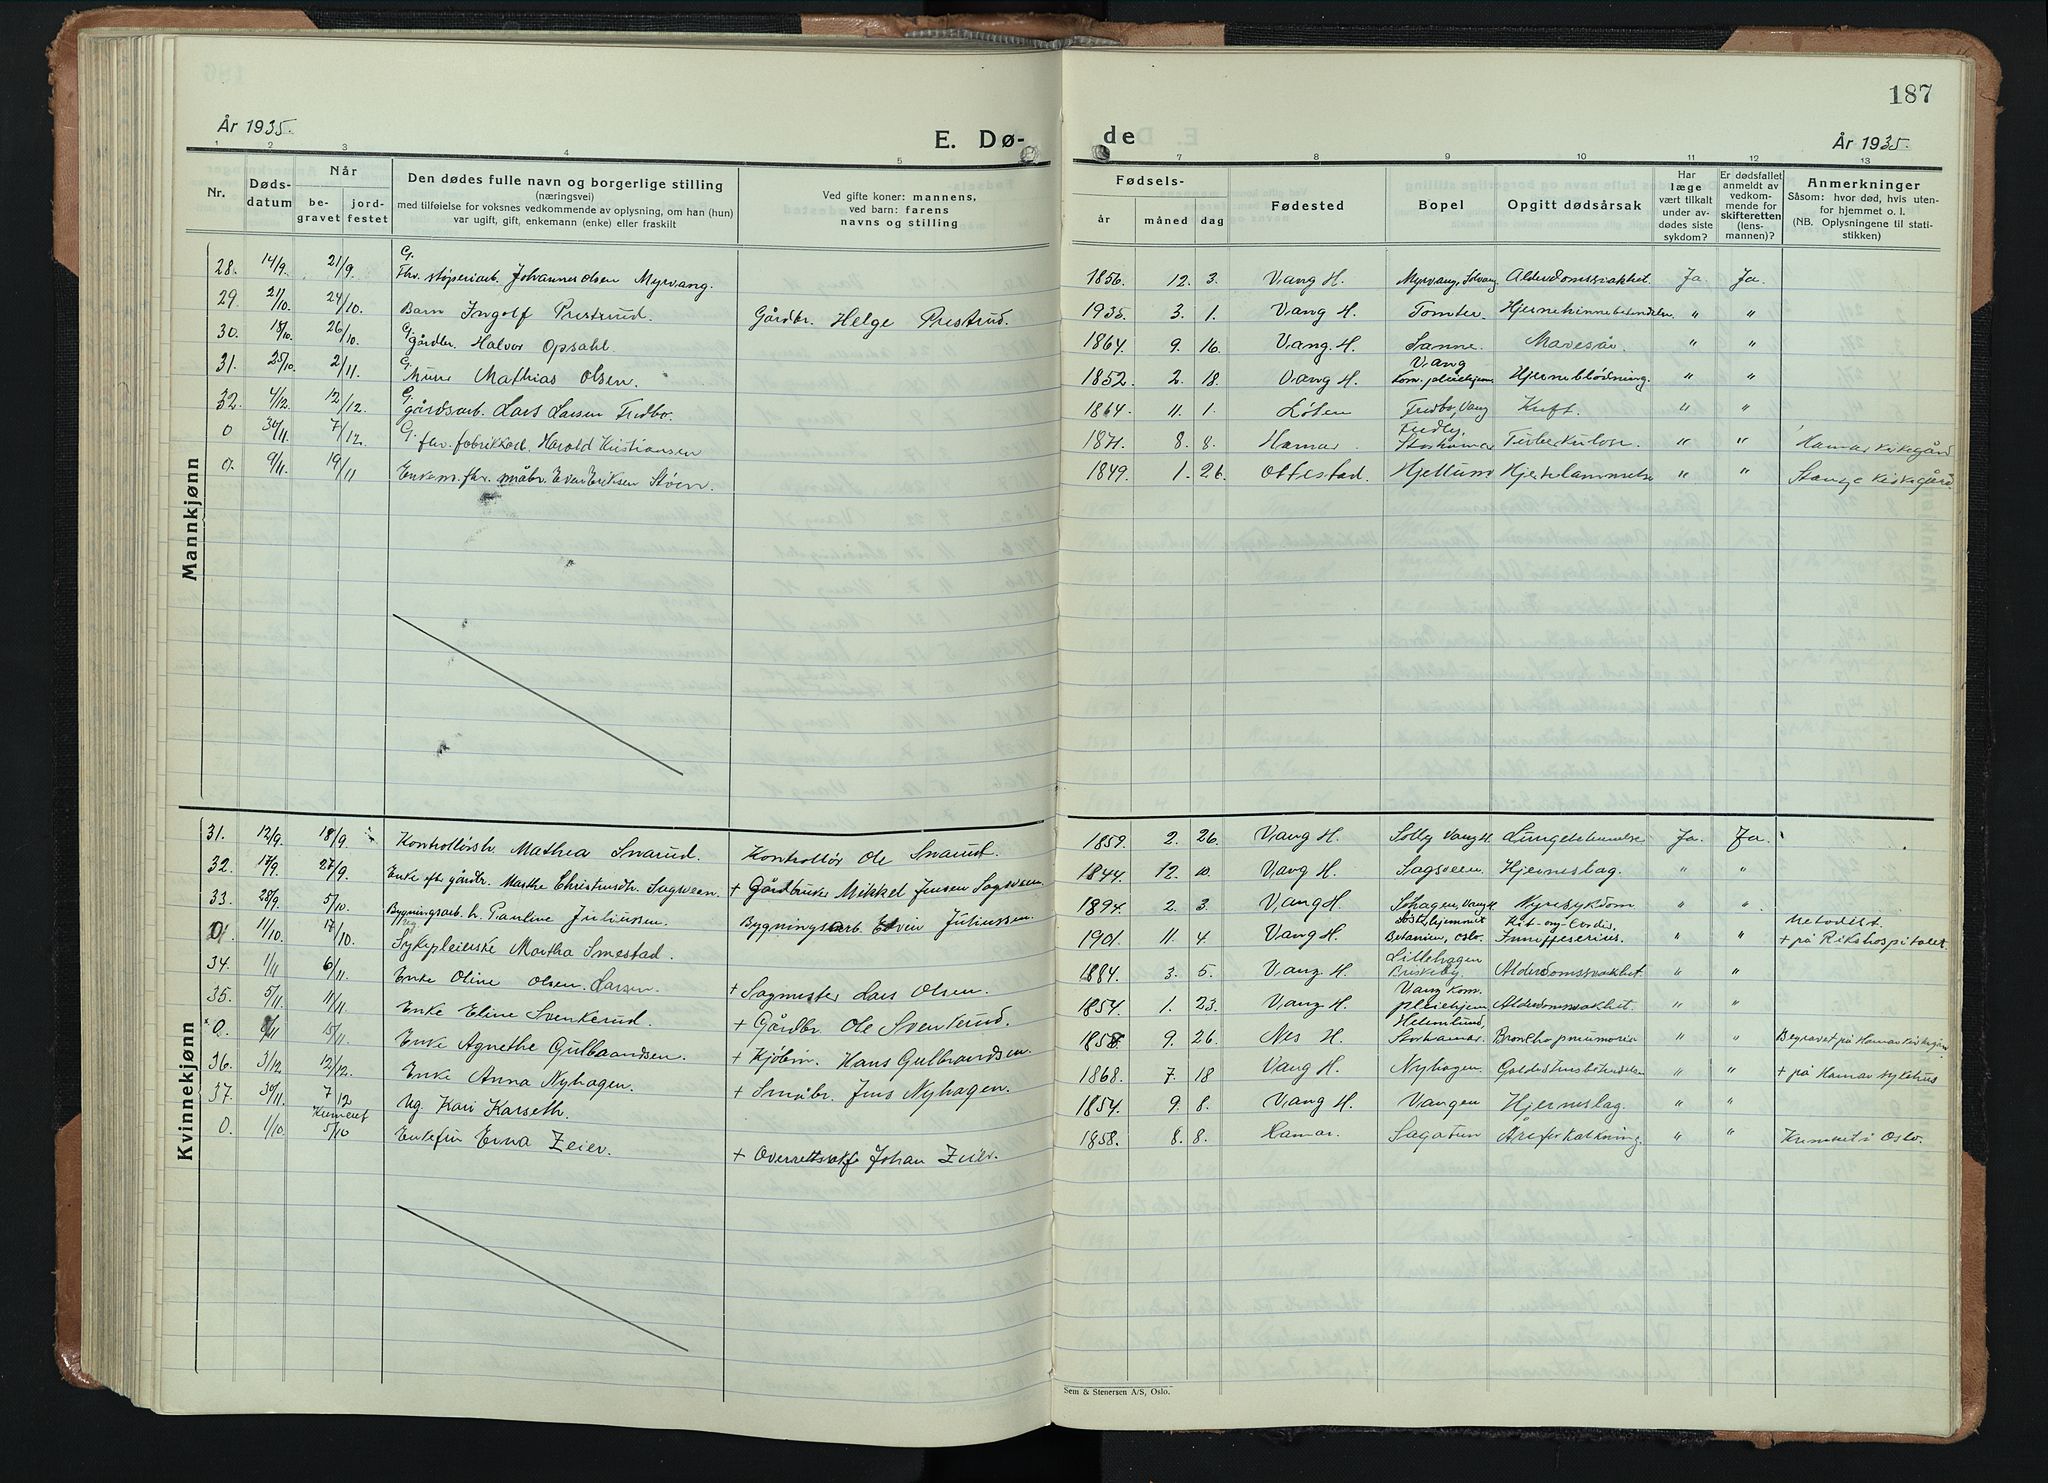 187
År 1935.
E. Dø-
de
År 1935.
1 2 3 4 5 7 8 9 10 11 12 13
Nr.
Døds-
datum
Når
be-
gravet
jord-
festet
Den dødes fulle navn og borgerlige stilling
(næringsvei)
med tilføielse for voksnes vedkommende av oplysning, om han (hun)
var ugift, gift, enkemann (enke) eller fraskilt
Ved gifte koner: mannens,
ved barn: farens
navns og stilling
Fødsels-
år måned dag
Fødested
Bopel
Opgitt dødsårsak
Har
læge
vært tilkalt
under av-
dødes siste
sykdom?
Er dødsfallet
anmeldt av
vedkom-
mende for
skifteretten
(lens-
mannen)?
Anmerkninger
Såsom: hvor død, hvis uten-
for hjemmet o. l.
(NB. Oplysningene til stati-
stikken)
Mannkjønn
28. 14/9. 21/9. G. Fhv. støperiarb. Johannes Olsen Myrvang. 1856. 12. 3. Vang H. Myrvang, Solvang Alderdomssvakhet. Ja Ja.
29. 21/10. 24/10. Barn Ingolf Prestrud. Gårdbr. Helge Prestrud. 1935. 3. 1. Vang H. Tomter. Hjernehinnebetendelse " "
30. 18/10. 26/10. G. gårdbr. Halvor Opsahl. 1864. 9. 16. Vang. H. Sanne. Mavesår. " "
31. 25/10. 2/11. G. Murer Mathias Olsen. 1852. 2. 18. Vang H. Vang Kom. pleiehjem Hjerneblødning. " "
32. 4/12. 12/12. G. gårdsarb. Lars Larsen Fredbo. 1864. 11. 1. Løten Fredbo, Vang Kreft. " "
0 30/11. 7/12. G. fhv. fabrikkarb. Harald Kristiansen 1871. 8. 8. Hamar Fredly, Storhamar Tuberkulose. " " Hamar kirkegård
0. 9/11. 19/11 Enkem. fhv. småbr. Even Eriksen Støen. 1849. 1. 26. Ottestad. Hjellum Hjertelammelse " " Stange kirkegård.
Kvinnekjønn
31. 12/9. 18/9. Kontrollørh. Mathea Snarud. Kontrollør Ole Snarud. 1859. 2. 26. Vang H. Solby Vang H. Lungebetennelse Ja. Ja.
32. 17/9. 27/9. Enke efter gårdbr. Marthe Christensdtr. Sagsveen + Gårdbruker Mikkel Jensen Sagsveen. 1844. 12. 10. Vang H. Sagsveen. Hjerneslag. " "
33. 28/9. 5/10. Bygningsarb. h. Pauline Juliussen. Bygningsarb. Edvin Juliussen. 1894. 2. 3. Vang H. Sohagen, Vang H Nyresykdom " "
0 11/10. 17/10. Sykepleierske Martha Smestad. 1901. 11. 4. Vang H. Søsterhjemmet Betanien, Oslo. " " Metodist. + på Rikshospitalet
34. 1/11 6/11. Enke Oline Olsen. Larsen. + Sagmester Lars Olsen. 1884. 3. 5. Vang. H. Lillehagen Briskeby. Alderdomssvakhet. " "
35. 5/11. 11/11. Enke Eline Svenkerud. + Gårdbr. Ole Svenkerud. 1854. 1. 23. Vang H. Vang Kom. pleiehjem Alderdomssvakhet. " "
0. 8/11 15/11. Enke Agnethe Gulbrandsen. + Kjøbm. Hans Gulbrandsen. 1858. 9. 26. Nes H. Heimlund, Storhamar. Bronkhopneumoria " " Begravet på Hamar kirkegård
36. 3/12. 12/12. Enke Anna Nyhagen. + Småbr. Jens Nyhagen. 1868. 7. 18 Vang H. Nyhagen. " " + på Hamar sykehus
37. 30/11. 7/12 Ug. Kari Karseth. 1854. 9. 8. Vang H. Vangen Hjerneslag. " "
0. 1/10. Kremert 5/10 Enkefru Erna Zeier. + Overrettssakf. Johan Zeier. 1858. 8. 8. Hamar. Sagatun Åreforkalkning " " Kremert i Oslo.
Sem & Stenersen A/S, Oslo.